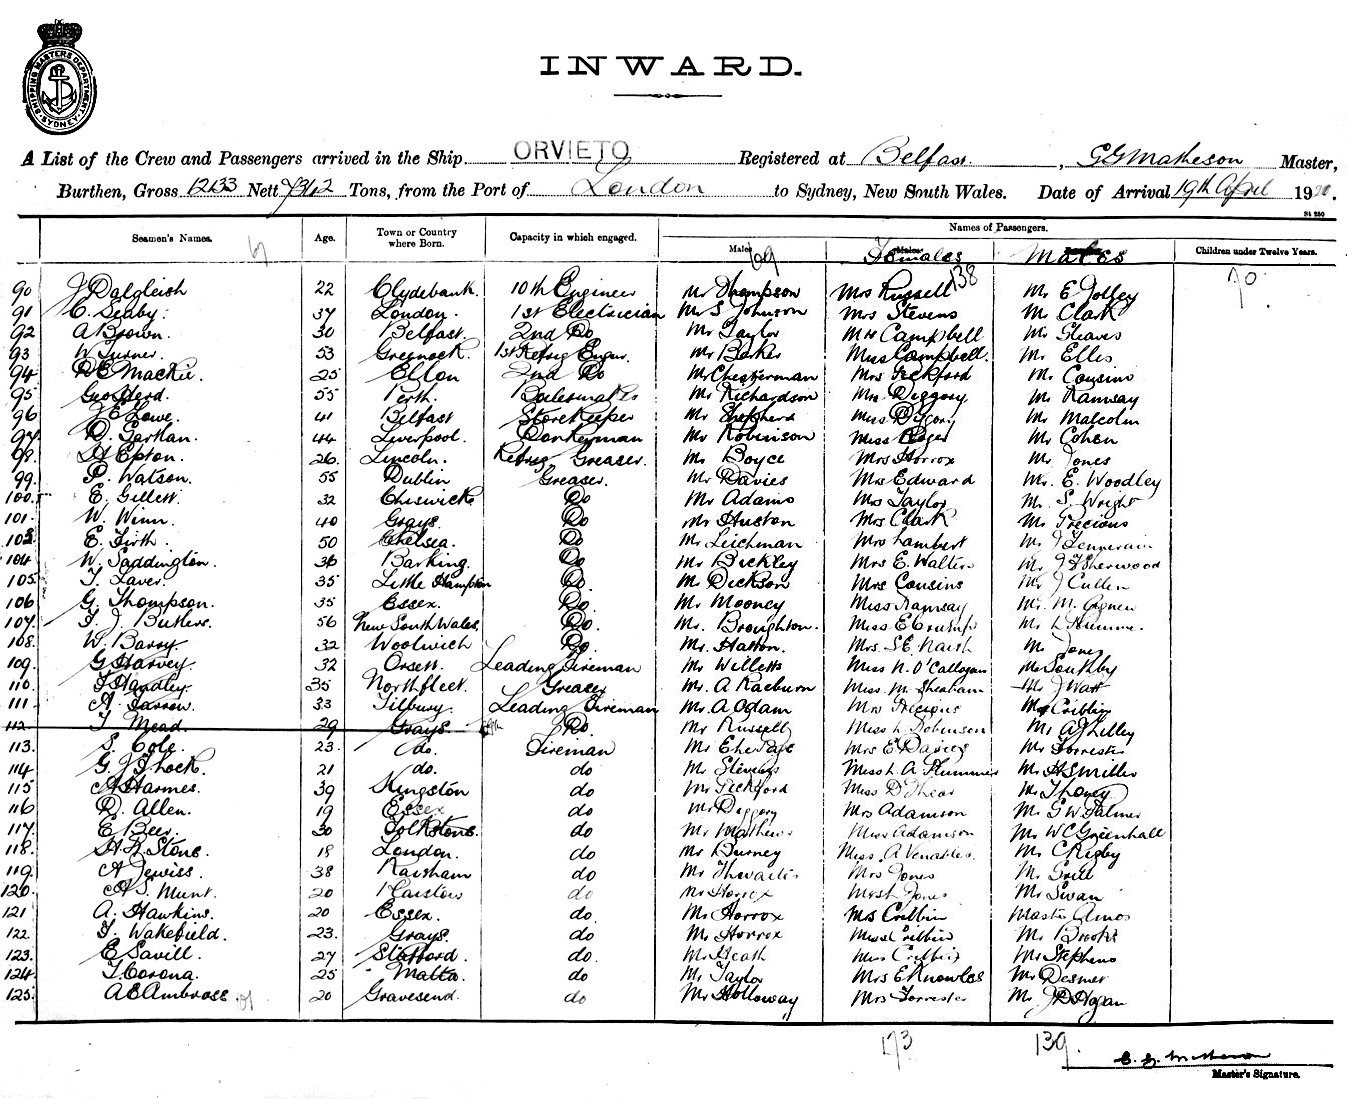 SHIPPING MASTERS DEPARTMENT
SYDNEY
INWARD.
A List of the Crew and Passengers arrived in the Ship ORVIETO Registered at Belfast, G G Matheson Master,
Burthen, Gross 12133 Nett 7342 Tons, from the Port of London to Sydney, New South Wales. Date of Arrival 19th April 19
St 250
Seamen's Names. Age. Town or Country where Born. Capacity in which engaged. Names of Passengers.
Males Females Males Children under Twelve Years.
69 138 70
90 J Dalgleish 22 Clydebank. 10th Engineer Mr Thompson Mrs Russell Mr E Jolley
91 C. Seaby. 37 London. 1st Electrician Mr S Johnson Mrs Stevens Mr Clark
92 A Brown. 30 Belfast. 2nd Do Mr Taylor Mrs Campbell Mr Gleaves
93 W Turner. 53 Greenock. 1st Refrig Engnr. Mr Baker Miss Campbell. Mr Ellis
94 E Mackie. 25 Ellon 2nd Do Mr Chesterman Mrs Peckford Mr Cousins
95 Geo 55 Perth. Mr Richardson Mrs Diggory Mr Ramsay
96 J E Lowe. 41 Belfast Storekeeper Mr Shepherd Miss Diggory Mr Malcolm
97 D. Gartlan. 44 Liverpool. Donkeyman Mr Robinson Miss Mr Cohen
98. H Epton. 26. Lincoln. Refrig Greaser. Mr Boyce Mrs Horrox Mr Jones
99. P. Watson. 55 Dublin Greaser. Mr Davies Mrs Edward Mr. E. Woodley
100. E. Gillett. 32 Chiswick Do Mr Adams Mrs Taylor Mr. S. Wright
101. W. Winn. 40 Grays. Do Mr Huston Mrs Clark Mr Precious
103. E. Firth. 50 Chelsea. Do Mr Leichman Mrs Lambert Mr J
104. W. Saddington. 36 Barking. Do Mr Bickley Mrs E. Walter Mr J F Sherwood
105. T. Laver. 35 Little Hampton Do. Mr Dickson Mrs Cousins Mr J Cullen
106 G. Thompson. 35 Essex. Do. Mr Mooney Miss Ramsay Mr. M. Agnew
107. F. J. Butlers. 56 New South Wales. Do. Mr. Broughton. Miss E Crump Mr L Humme.
108. W. Barry. 32 Woolwich Do. Mr. Hatton. Mrs. S E Naish Mr Jones
109. G Harvey. 32 Orsett. Leading Fireman Mr Willetts Miss N. O'Callagan Mr Southby
110. T Handley. 35 Northfleet. Greaser Mr. A Raeburn Miss. M. Sheaham Mr J Watt
111. A. Farrow. 33 Tilbury. Leading Fireman Mr. A Adam Mrs Precious Mr Cribbin
112 T Mead. 29 Grays. Do. Mr Russell Miss L Robinson Mr A J Lilley
113. S. Cole. 23. do. Fireman Mr Etheridge Mrs E Davies Mr Forrester
114 G. J Shock. 21 do. do Mr Stevens Miss L. A. Plummer Mr H Smiller
115 A Harmes. 39 Kingston do Mr Peckford Miss D Shear Mr Thoney
116 D. Allen. 19 Essex do Mr Diggory Mrs Adamson Mr G W Palmer
117. E Bees. 30 Folkstone. do Mr Mathews Miss Adamson Mr W C Greenhall
118. H. L. Stone. 18 London. do Mr Burney Miss. A Venables. Mr C Rigby
119. A Jewiss. 38 Rainham do Mr Thwaites Mrs Jones Mr Grill
120. A S. Munt. 20 do Mr Horrox Miss Jones Mr Swan
121 A. Hawkins. 20 Essex. do. Mr Horrox Mrs Cribbin Master Amos
122 T. Wakefield. 23. Grays. do Mr. Horrox Miss Cribbin Mr Brooks
123. E Savill. 27 Stafford. do. Mr Heath Miss Cribbin Mr Stephens
124. T Corona. 25 Malta. do Mr Taylor Mrs E Knowles Mr Desmer
125. A E Ambrose. 20 Gravesend. do Mr Holloway Mrs Forrester Mr J D Hogan
173 139.
G. G. Matheson
Master's Signature.